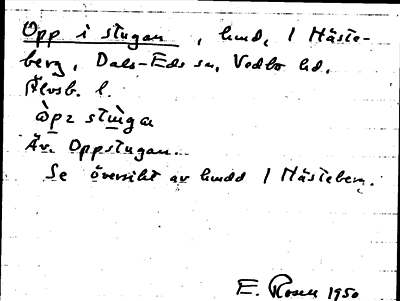 Opp i stugan, hmd, 1 Häste-
berg, Dals-Eds sn, Vedbo hd.
Älvsb. l.
òpz stùga
Äv. Oppstugan.
Se översikt av hmdd 1 Hästeberg.
E. Rosell 1950